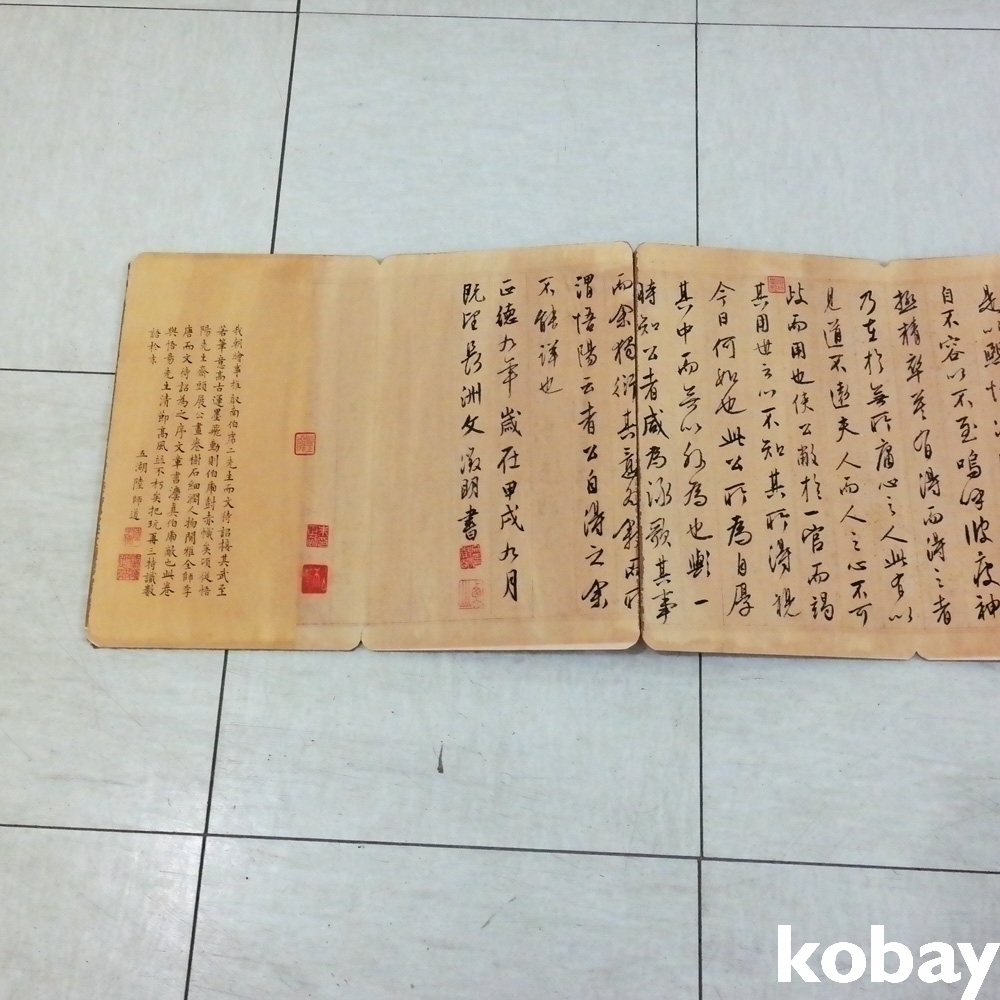 自不容以不至嗚呼彼疲神
極精卒莫有得而得之者
乃在於無所庸心之人此有以
見道不遠夫人而人之心不可
歧而用也使公敝於一官而竭
其用世之心不知其所得視
今日何如也此公所為自厚
其中而無以外為也歟一
時知公者咸為詠歌其事
而余獨衍其意
謂悟陽云者公自得之余
不能詳也
正德九年歲在甲戌九月
既望長洲文徵明書
我朝繪事推
若筆意高古運墨飛動則伯虎
陽先生齋頭展公畫卷樹石細潤人物閒雅全師李
唐而文待詔為之序文章書灋真伯虎敵也此卷
與悟陽先生清節高風並不朽矣把玩再三特識數
語於末
五湖陸師道
kobay